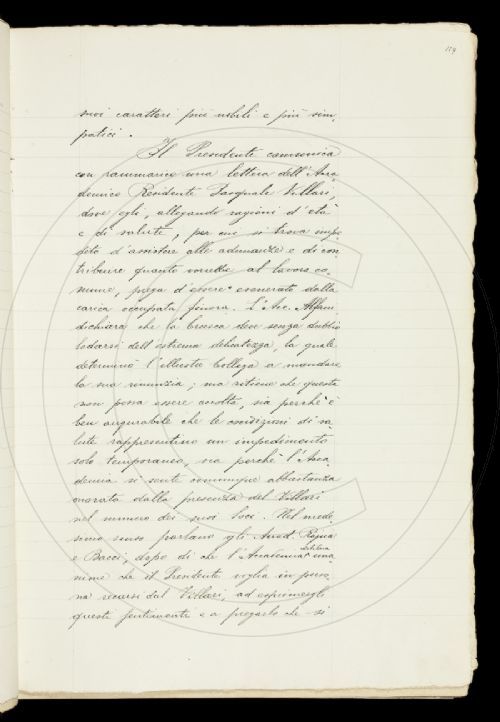 159
suoi caratteri più nobili e più sim-
patici.
Il Presidente comunica
con rammarico una lettera dell'Acca
demico Residente Pasquale Villari,
dove egli, allegando ragioni d'età
e di salute, per cui si trova impe-
dito d'assistere alle adunanze e di con
tribuire quanto vorrebbe al lavoro co-
mune, prega d'essere esonerato dalla
carica occupata finora. L'Acc. Alfani
dichiara che la Crusca deve senza dubbio
lodarsi dell'estrema delicatezza, la quale
determinò l'illustre Collega a mandare
la sua rinunzia; ma ritiene che questa
non possa essere accolta, sia perchè è
ben augurabile che le condizioni di sa-
lute rappresentino un impedimento
solo temporaneo, sia perchè l'Acca
demia si sente comunque abbastanza
onorata dalla presenza del Villari
nel numero dei suoi Soci. Nel mede-
simo senso parlano gli Accad. Rajna
e Bacci; dopo di che l'Accademia delibera una-
nime che il Presidente voglia in perso
na recarsi dal Villari, ad esprimergli
questi sentimenti e a pregarlo che si